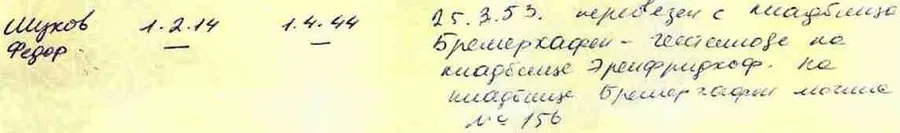 Шуков 1.2.14 1.4.44 25.3.53. переведен с кладбища
Федор Бремерхафен - Геестемюнде на
кладбище Эренфридхоф. На
кладбище Бремергафен могила
№ 156